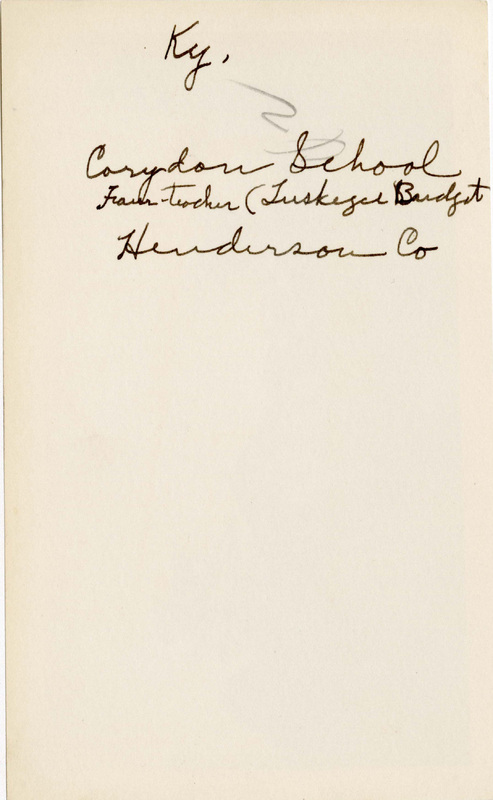 Ky.
Corydon School
Four-teacher (Tuskegee Budget
Henderson Co